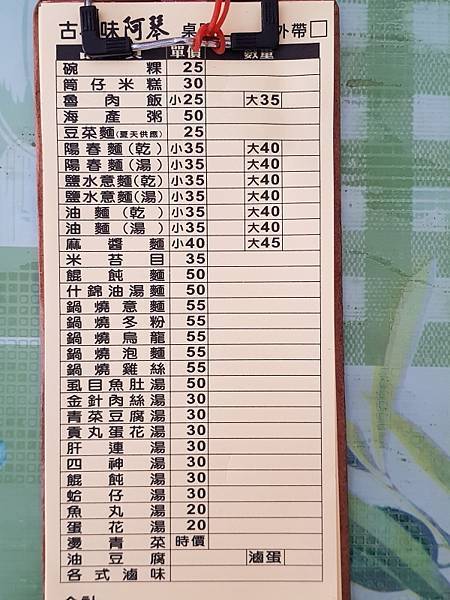 古 味 阿琴 桌 外帶
單價 數量
碗粿 25
筒仔米糕 30
魯肉飯 小25 大35
海產粥 50
豆菜麵(夏天供應) 25
陽春麵(乾) 小35 大40
陽春麵(湯) 小35 大40
鹽水意麵(乾) 小35 大40
鹽水意麵(湯) 小35 大40
油麵(乾) 小35 大40
油麵(湯) 小35 大40
麻醬麵 小40 大45
米苔目 35
餛飩麵 50
什錦油湯麵 50
鍋燒意麵 55
鍋燒冬粉 55
鍋燒烏龍 55
鍋燒泡麵 55
鍋燒雞絲 55
虱目魚肚湯 50
金針肉絲湯 30
青菜豆腐湯 30
貢丸蛋花湯 30
肝連湯 30
四神湯 30
餛飩湯 30
蛤仔湯 30
魚丸湯 20
蛋花湯 20
燙青菜 時價
油豆腐 滷蛋
各式滷味